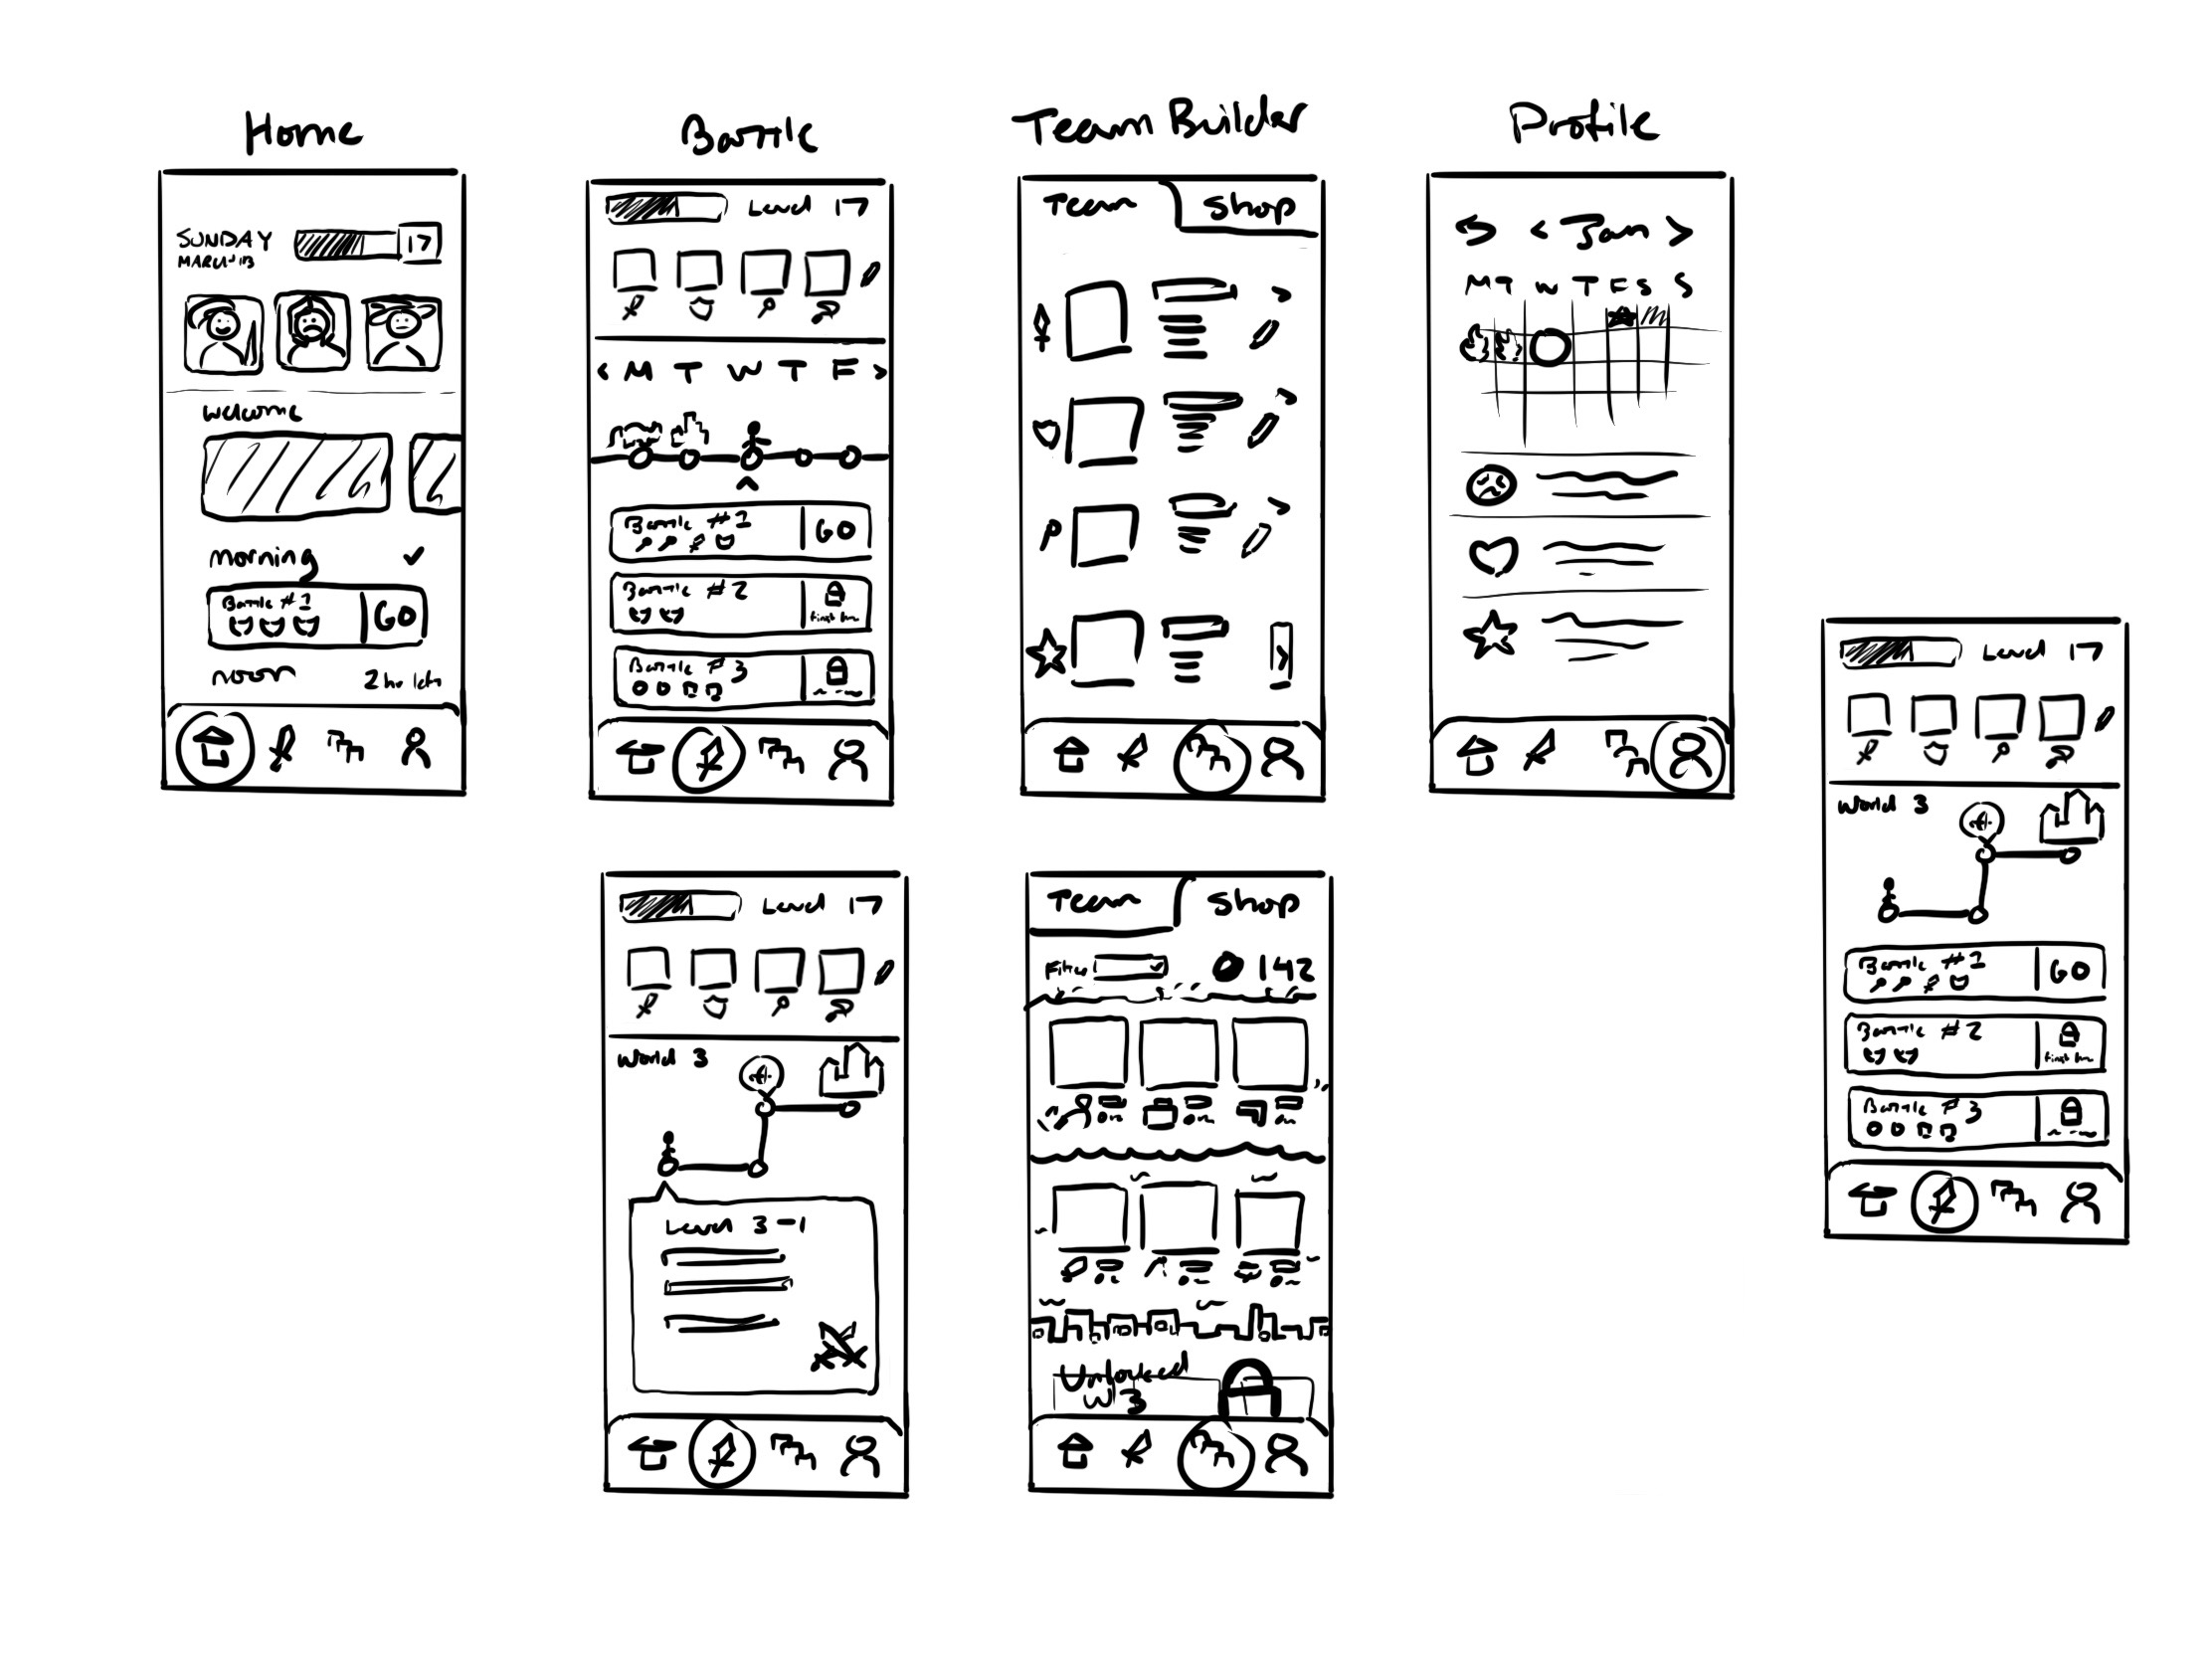 Home
SUNDAY
MARCH 13
17
welcome
morning
Battle #1
GO
noon
2 hr left
Battle
Level 17
< M T W T F >
Battle #1
GO
Battle #2
Battle #3
Team Builder
Team
Shop
Profile
< Jan >
M T W T F S S
Level 17
World 3
Battle #1
GO
Battle #2
Battle #3
Level 17
World 3
Level 3-1
Team
Shop
Filter
142
Unlocked
W 3